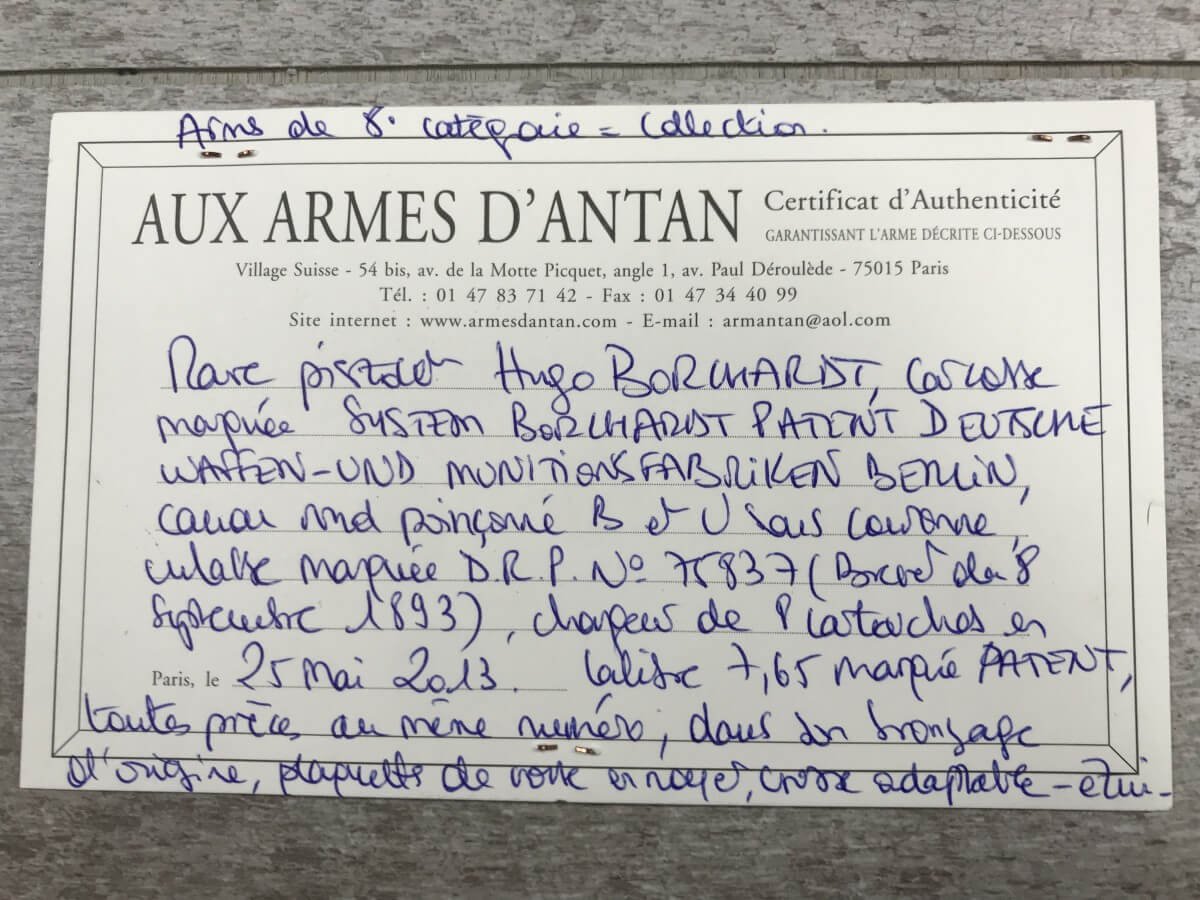 Arms de 8° catégorie = Collection.
AUX ARMES D'ANTAN
Certificat d'Authenticité
GARANTISSANT L'ARME DÉCRITE CI-DESSOUS
Village Suisse - 54 bis, av. de la Motte Picquet, angle 1, av. Paul Déroulède - 75015 Paris
Tél. : 01 47 83 71 42 - Fax : 01 47 34 40 99
Site internet : www.armesdantan.com - E-mail : armantan@aol.com
Rare pistolet Hugo BORCHARDT, carcasse
marquée SYSTEM BORCHARDT PATENT DEUTSCHE
WAFFEN-UND MUNITIONSFABRIKEN BERLIN,
canon rond poinçonné B et U sous couronne,
culasse marquée D.R.P. No 75837 (Brevet du 8
Septembre 1893), chargeur de 8 cartouches en
Paris, le 25 Mai 2013. calibre 7,65 marqué PATENT,
toutes pièces au même numéro, dans son bronzage
d'origine, plaquettes de crosse en noyer, crosse adaptable - étui -